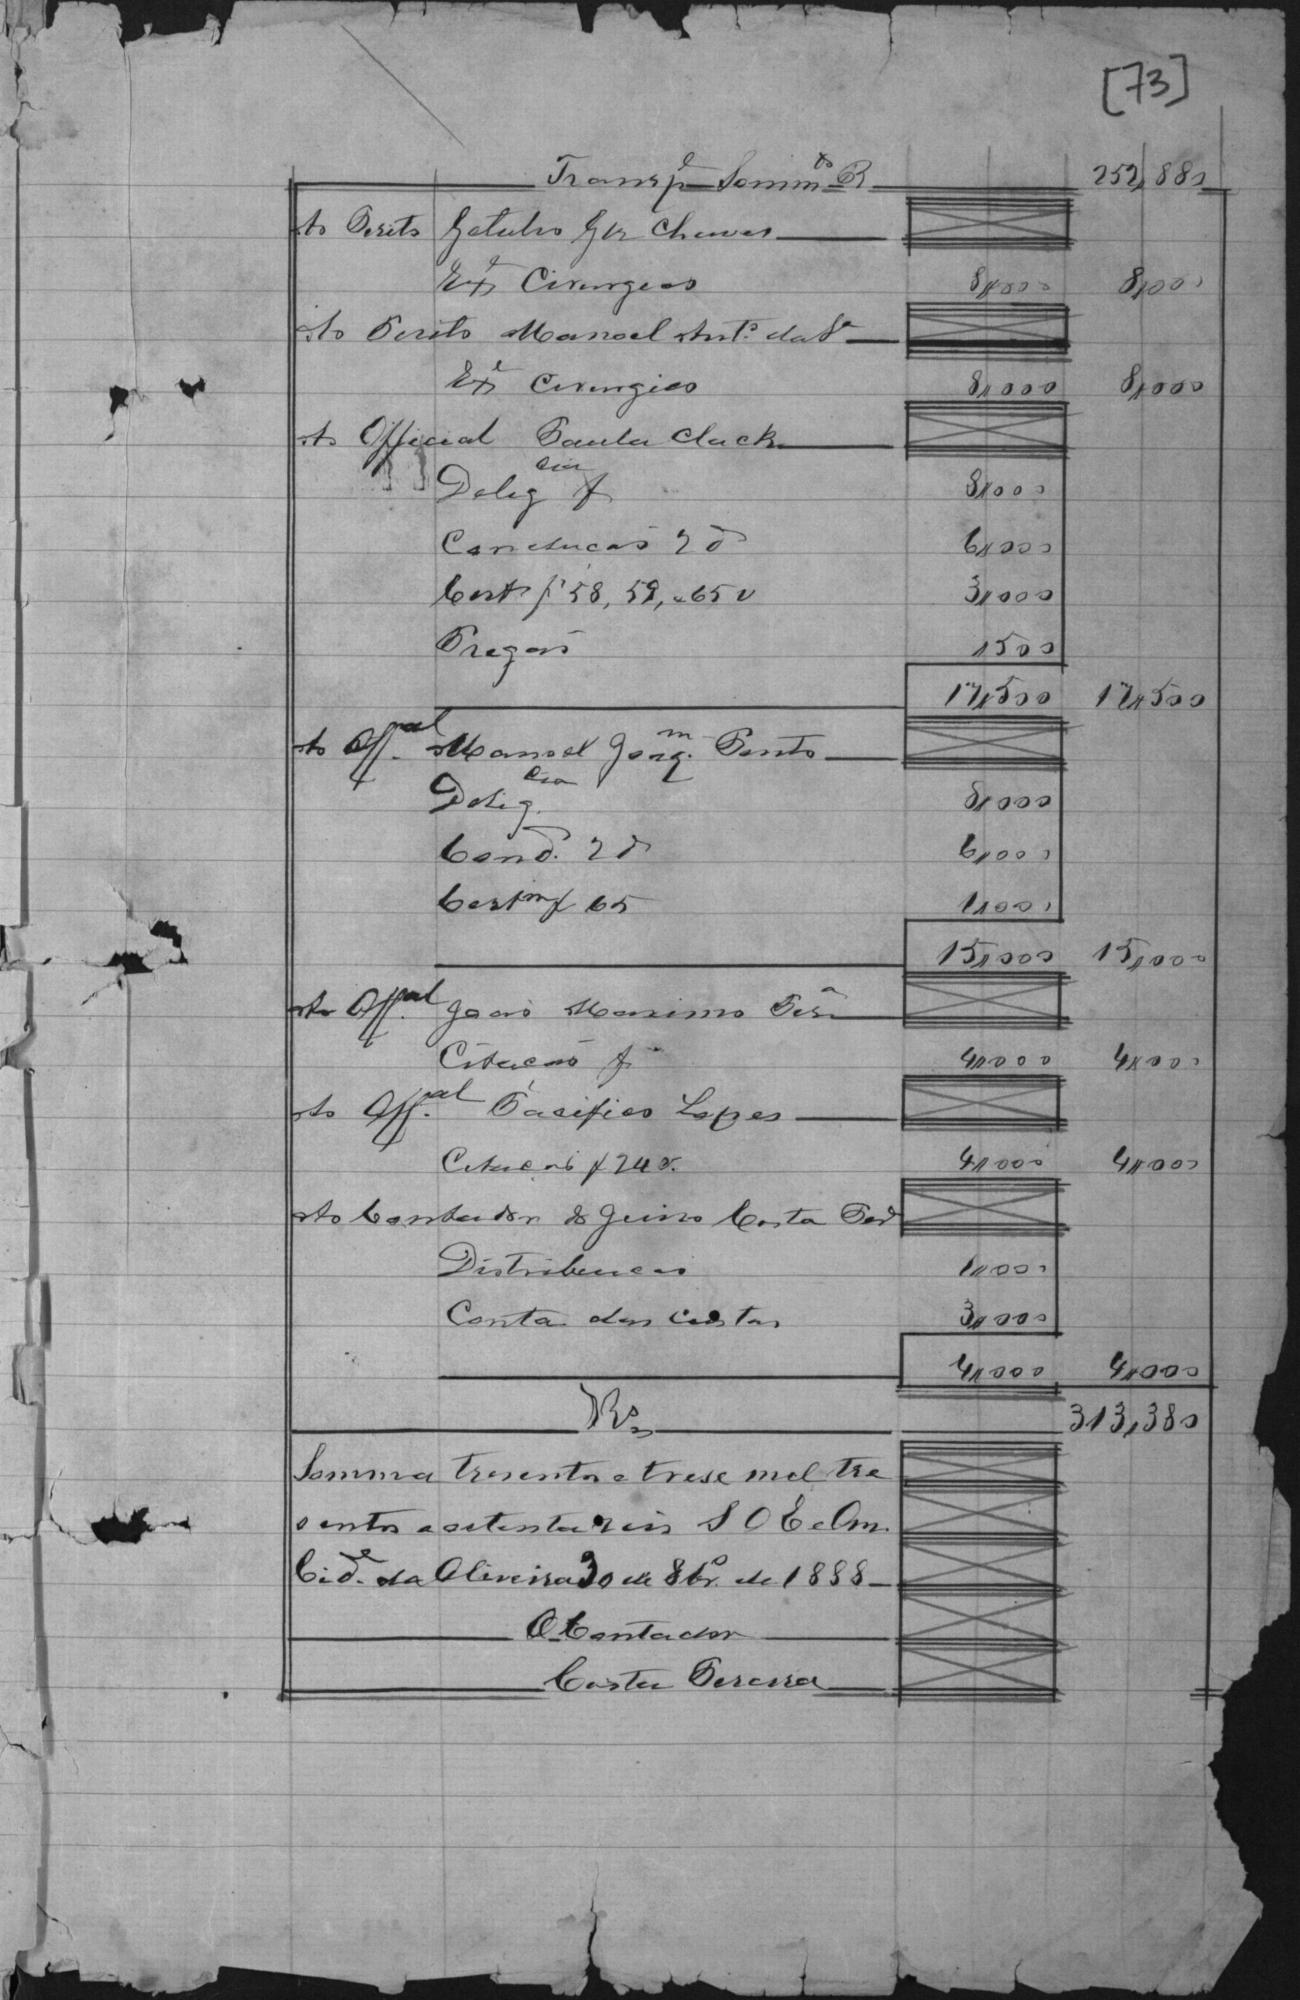 [73]
Transpe Sommto R 252,880
Ao Perito Getulio Glz Chaves
Exe Cirurgico 8,000 8,000
Ao Perito Manoel Anto da Sa
Exe Cirurgico 8,000 8,000
Ao Official Paula Clack
Deligcia f 8,000
Conducão 2 d 6,000
Cert f 58, 59, e 65 v 3,000
Pregão 1500
17,500 17,500
Ao Offal Manoel Joaqm Pinto
Deligcia 8,000
Cond. 2 d 6,000
Certm f 65 1,000
15,000 15,000
Ao Offal João Maximo Pera
Citação f 4,000 4,000
Ao Offal Pacifico Lopes
Citação f 24 v. 4,000 4,000
Ao Contador do Juizo Costa Per
Distribuição 1,000
Conta das custas 3,000
4,000 4,000
Rs 313,380
Somma tresentos e trese mil tre
sentos e oitenta reis S O E e Om.
Cide da Oliveira 30 de 8bro de 1888
O Contador
Costa Pereira